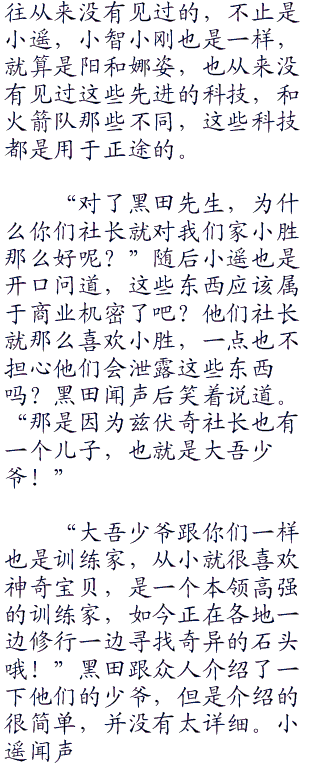 往从来没有见过的，不止是
小遥，小智小刚也是一样，
就算是阳和娜姿，也从来没
有见过这些先进的科技，和
火箭队那些不同，这些科技
都是用于正途的。
“对了黑田先生，为什
么你们社长就对我们家小胜
那么好呢？”随后小遥也是
开口问道，这些东西应该属
于商业机密了吧？他们社长
就那么喜欢小胜，一点也不
担心他们会泄露这些东西
吗？黑田闻声后笑着说道。
“那是因为兹伏奇社长也有
一个儿子，也就是大吾少
爷！”
“大吾少爷跟你们一样
也是训练家，从小就很喜欢
神奇宝贝，是一个本领高强
的训练家，如今正在各地一
边修行一边寻找奇异的石头
哦！”黑田跟众人介绍了一
下他们的少爷，但是介绍的
很简单，并没有太详细。小
遥闻声